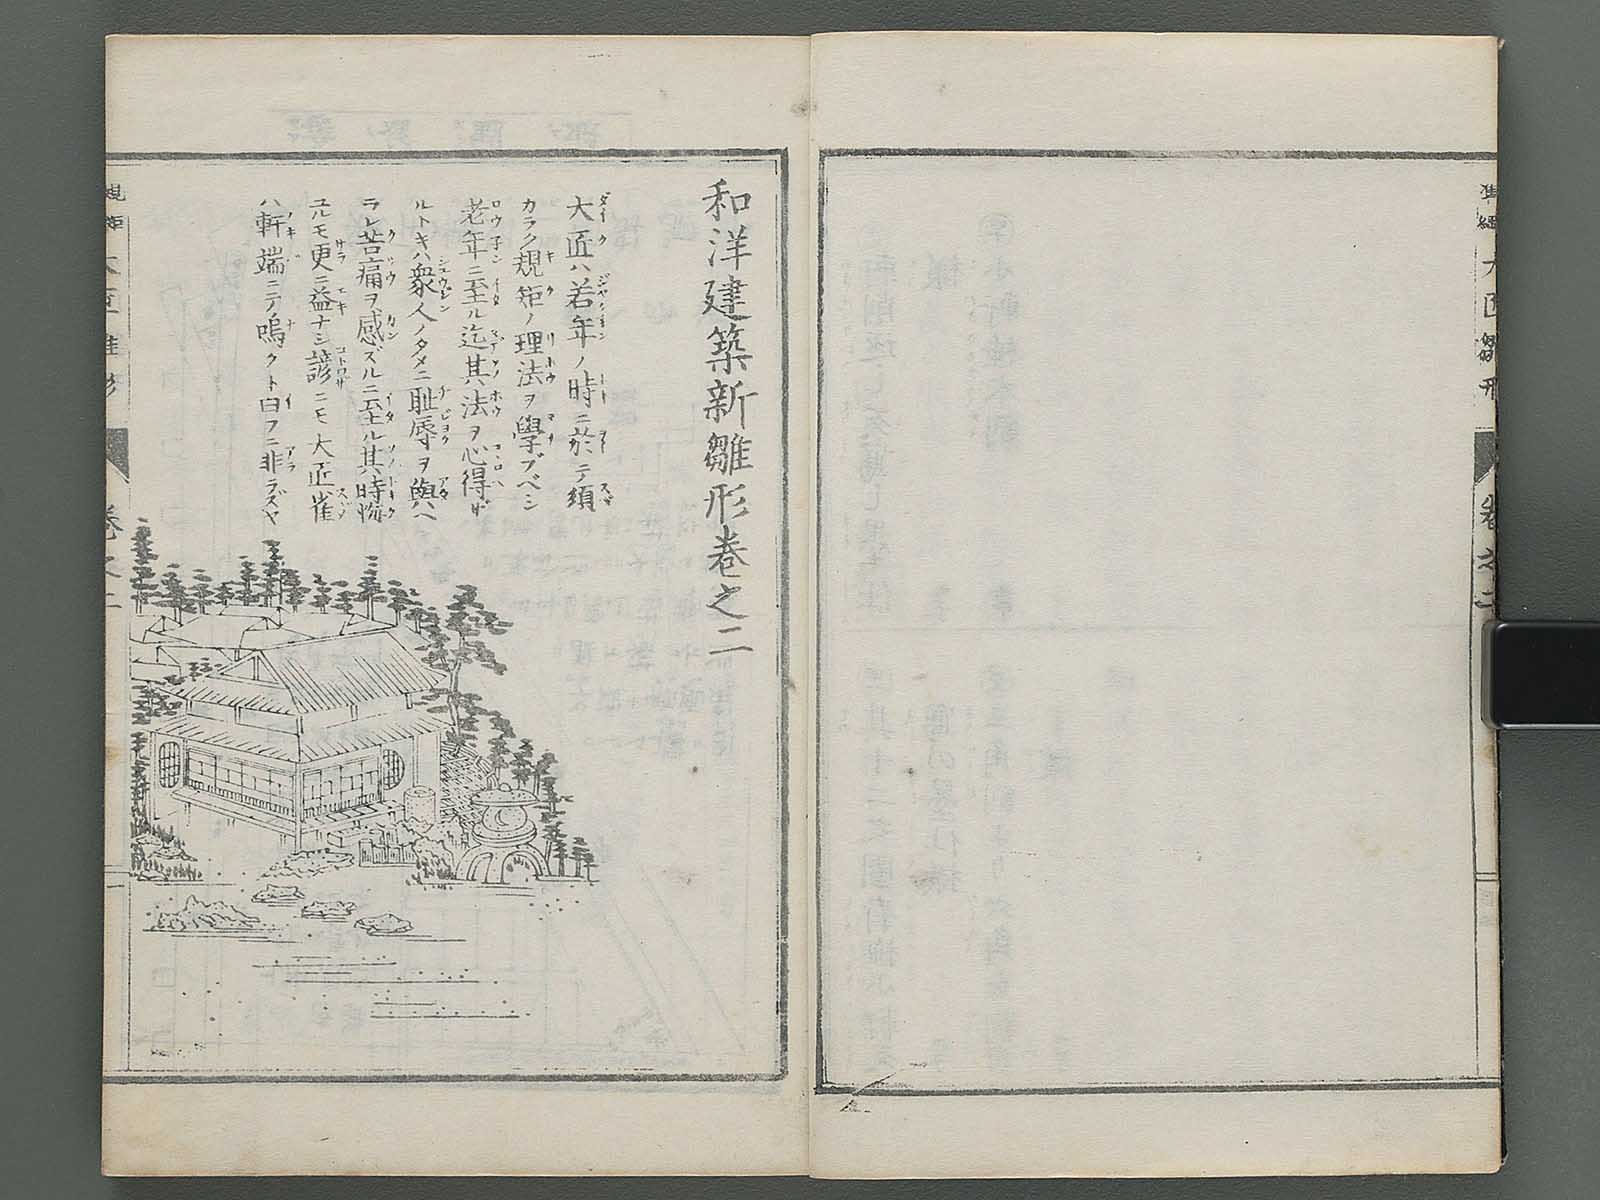 準縄大匠雛形
卷之二
和洋建築新雛形卷之二
大匠ハ若年ノ時ニ於テ須
カラク規矩ノ理法ヲ學ブベシ
老年ニ至ル迄其法ヲ心得ザ
ルトキハ衆人ノタメニ耻辱ヲ與ヘ
ラレ苦痛ヲ感ズルニ至ル其時悔
ユルモ更ニ益ナシ諺ニモ大匠雀
ハ軒端ニテ鳴クト曰フニ非ラズヤ
規矩大匠雛形
卷之二